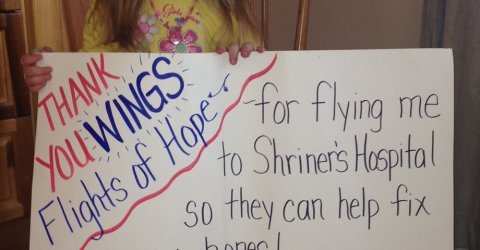 Girls
THANK
YOU WINGS
Flights of Hope
for flying me
to Shriner's Hospital
so they can help fix
bones!